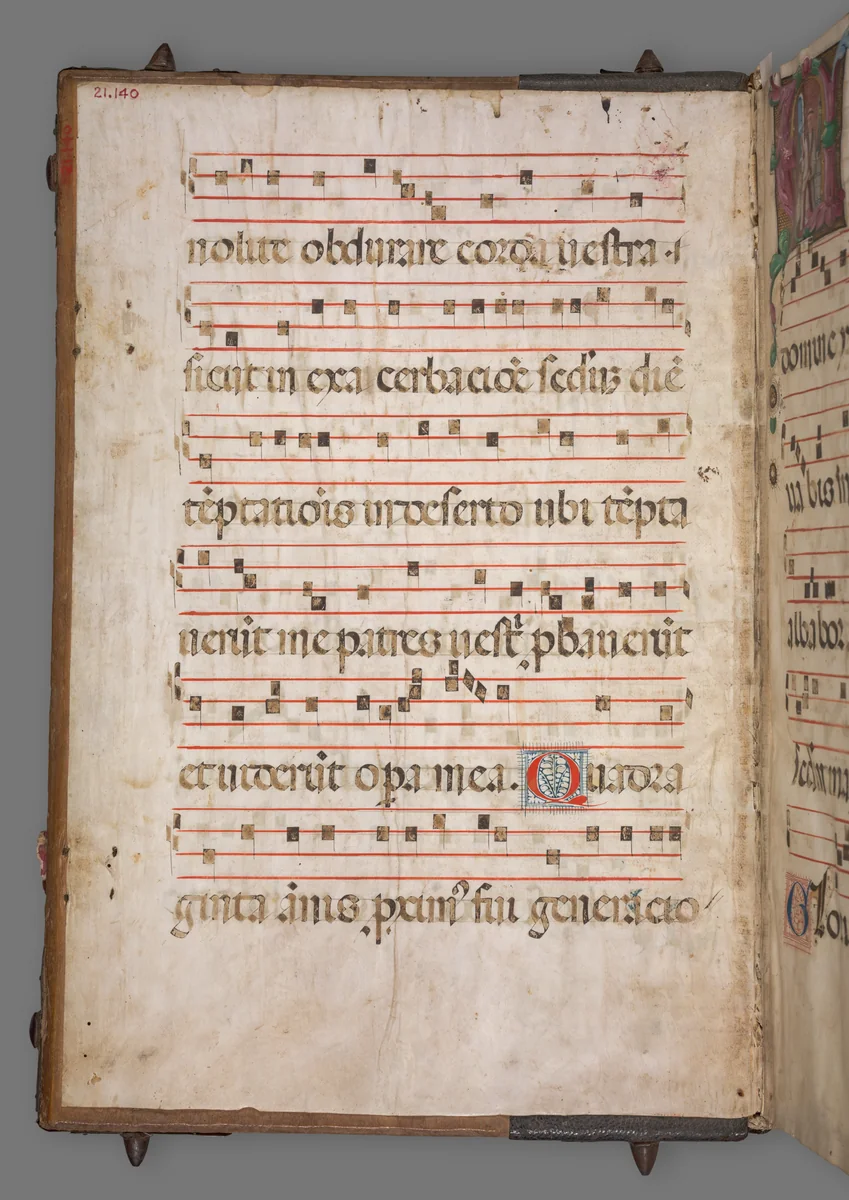 21.140
nolite obdurare corda vestra
sicut in exa cerbacioē sedū diē
tēptatiōis in deserto ubi tēpta
verūt me patres vest̄ pbaverūt
et viderūt opa mea. Quadra
ginta ānis fui generacio
domine
albabor
Glo